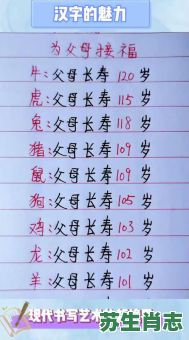 汉字的魅力
为父母接福
牛:父母长寿120岁
虎:父母长寿115岁
兔:父母长寿118岁
猪:父母长寿109岁
鼠:父母长寿109岁
狗:父母长寿105岁
鸡:父母长寿103岁
龙:父母长寿102岁
羊:父母长寿101岁
现代书写艺术
苏生肖志